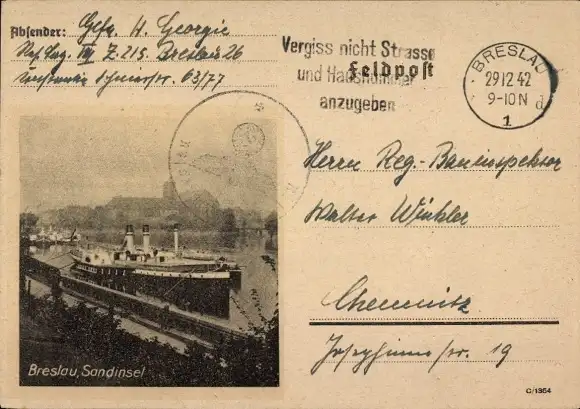 Absender: Gefr. H. Georgie
Res. Laz. III Z. 215 Breslau 26
63/77
Vergiss nicht Strasse
und Hausnummer
anzugeben
Feldpost
BRESLAU
29.12.42
9-10 N
d
1
Herrn Reg.-Bauinspektor
Walter Winkler
Chemnitz
Josephinenstr. 19
Breslau, Sandinsel
C/1364